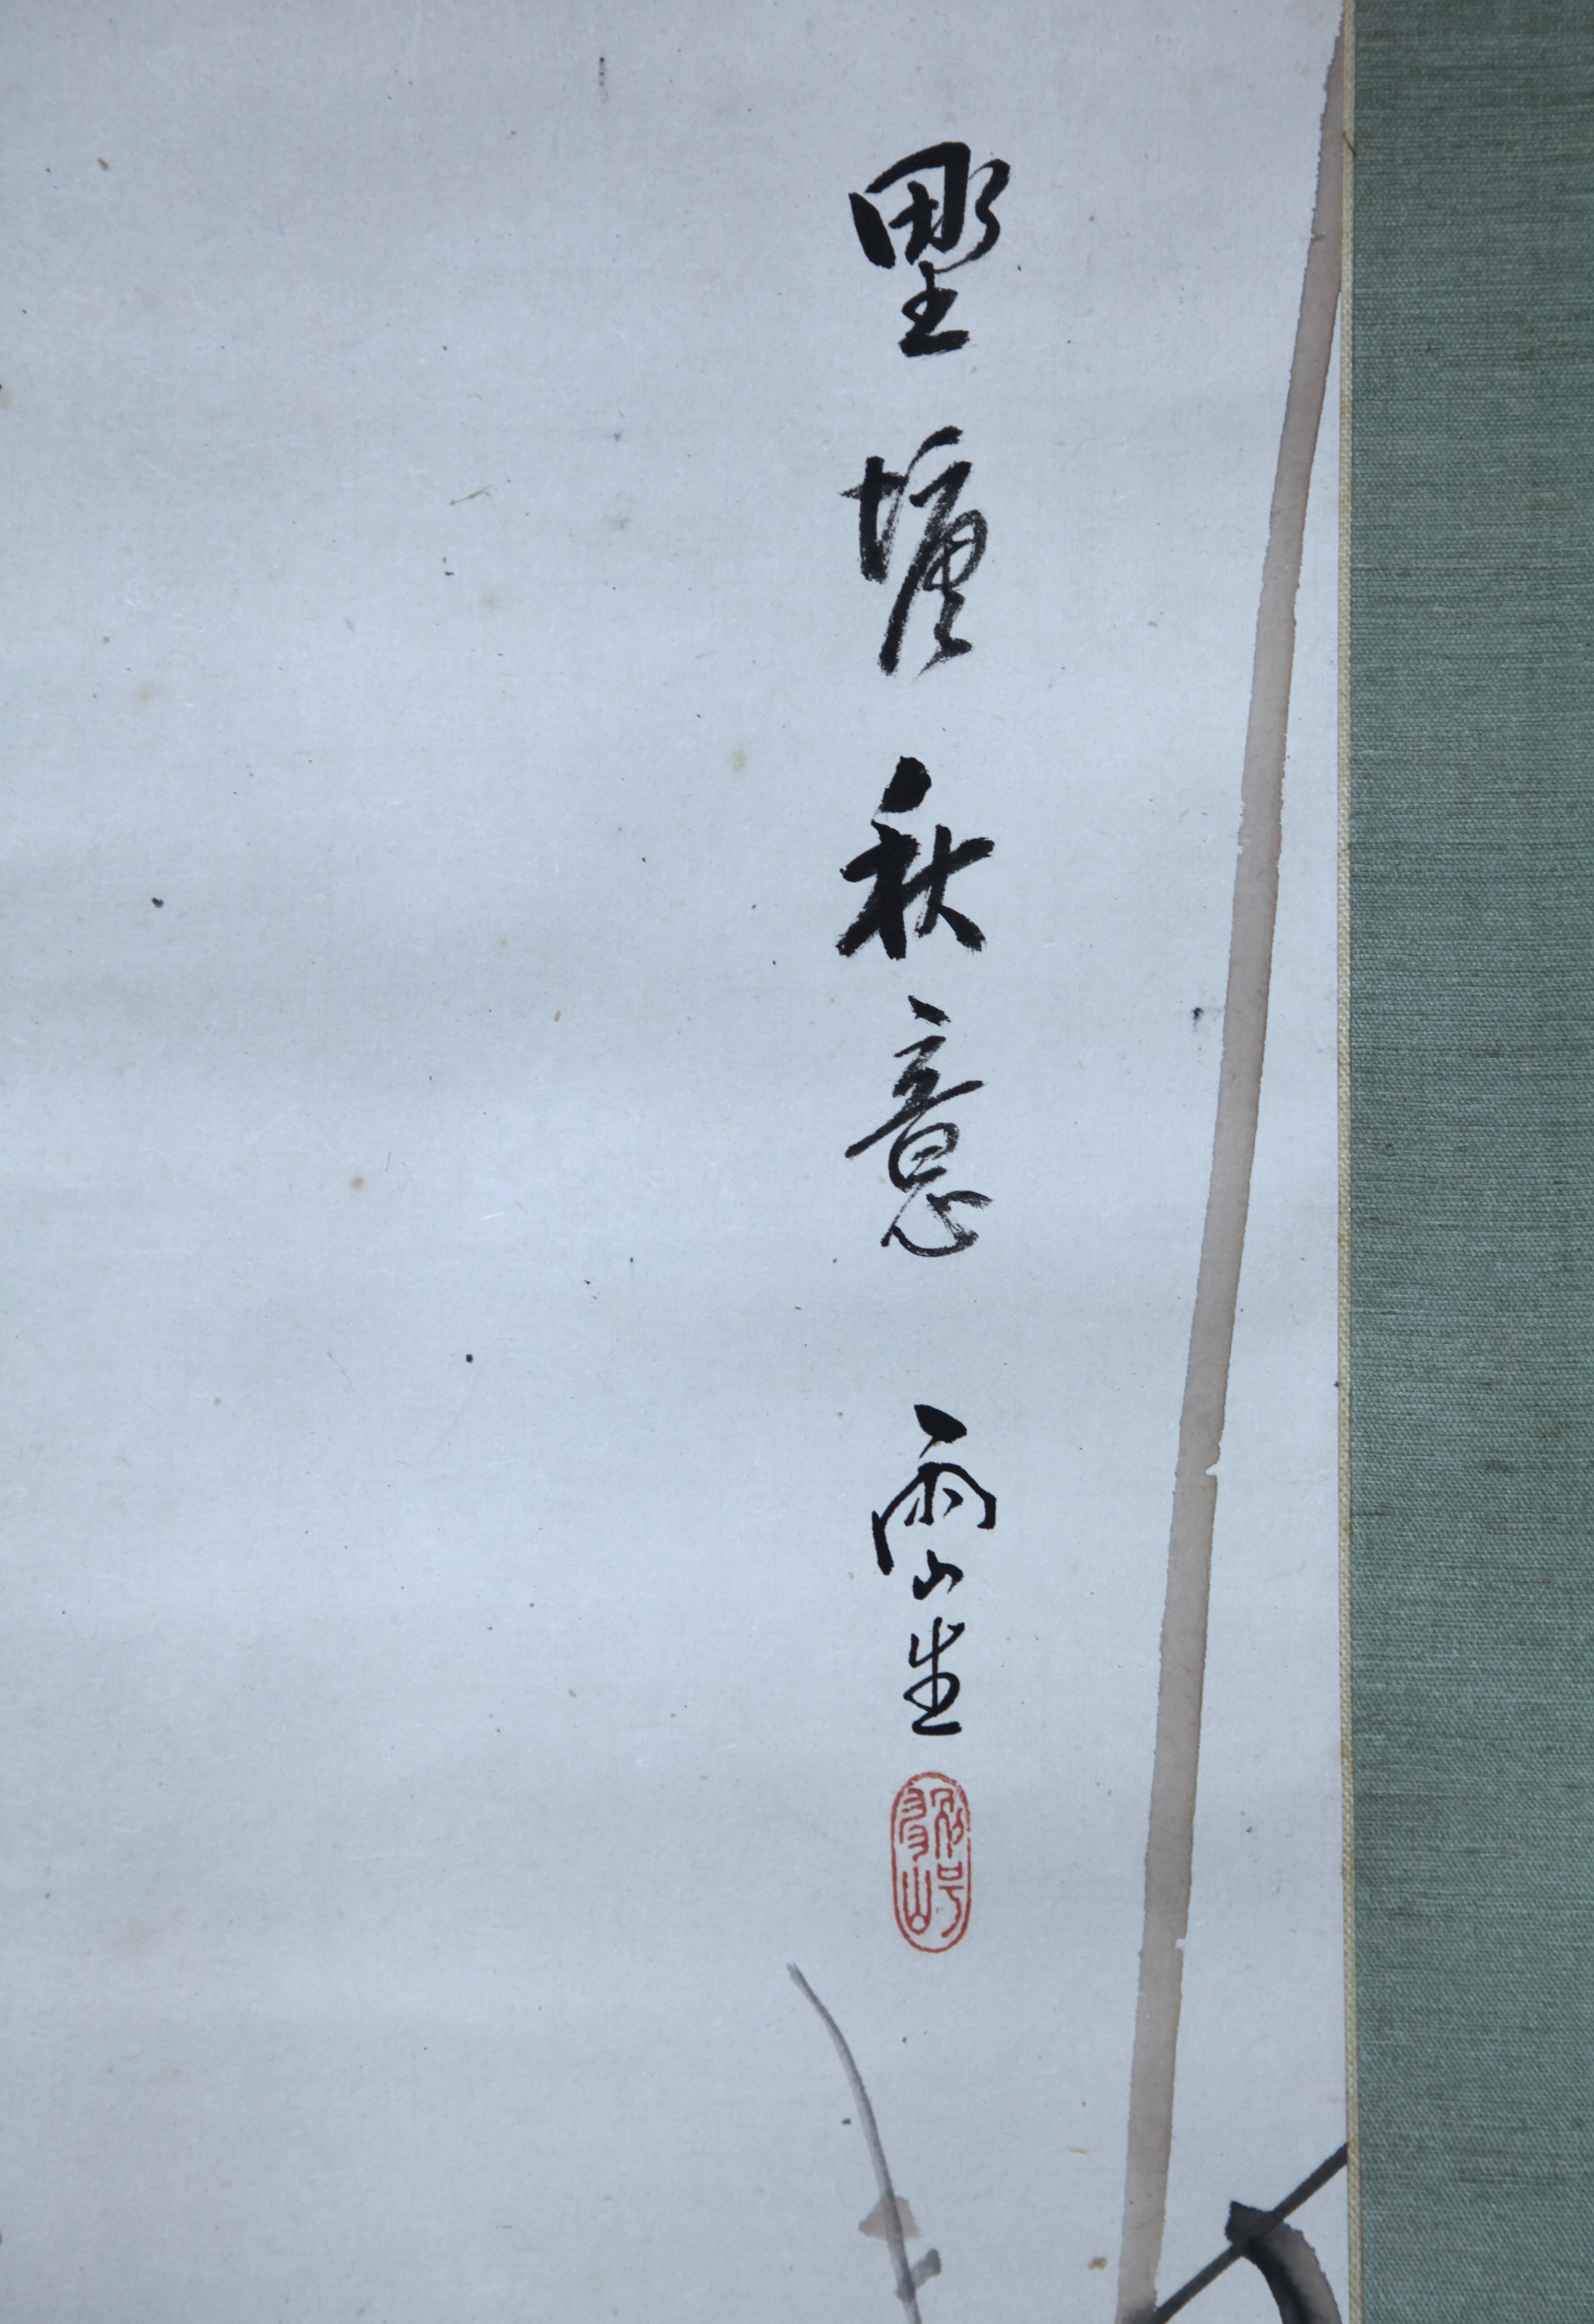 野塘秋意 雨山生